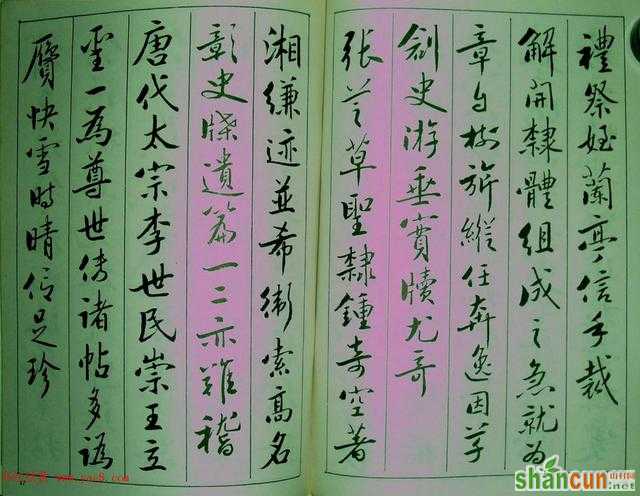 禮祭姪蘭亭信手裁
解開隸體組成之急就為
章樹旂縱任奔逸因草
創史游垂實牘尤奇
張芝草聖隸鍾奇空著
湘縑迹並希衛索高名
彰史牒遺篇一二亦難稽
唐代太宗李世民崇王立
聖一為尊世傳諸帖多譌
贗快雪時晴信足珍
shancun
.net